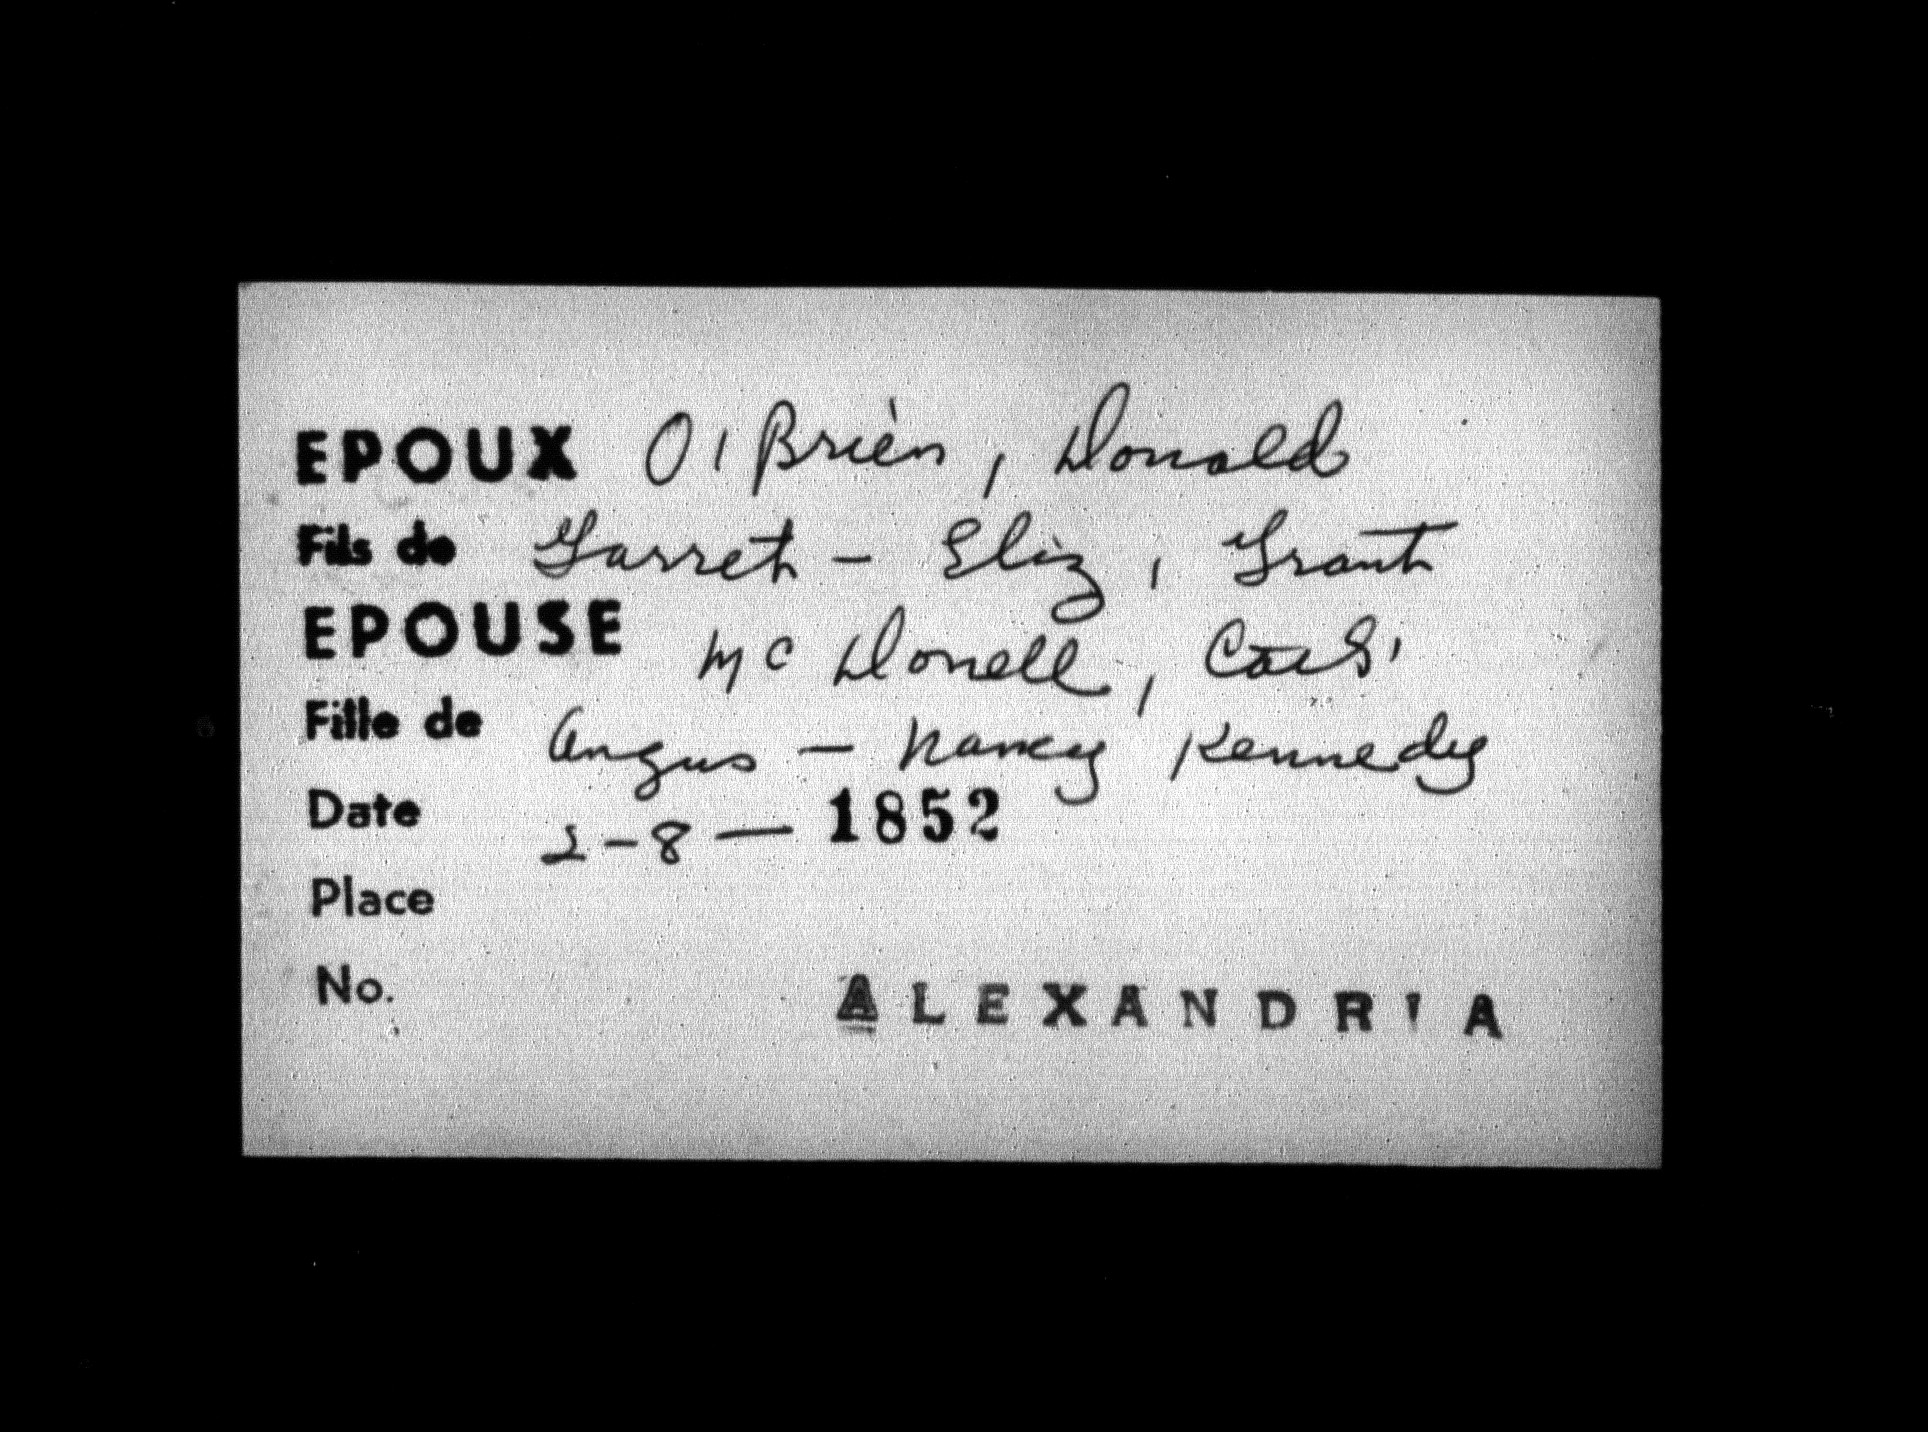 EPOUX O'Brien, Donald
Fils de Garret - Eliz, Grant
EPOUSE Mc Donell, Cath'
Fille de Angus - Nancy Kennedy
Date 2-8-1852
Place
No.
ALEXANDRIA